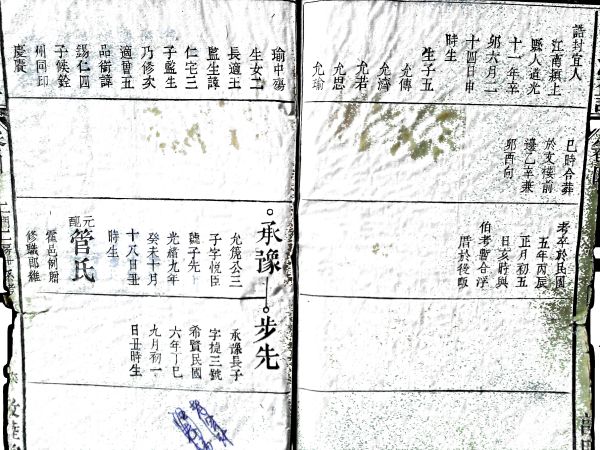 誥封宜人
江南潁上
縣人道光
十一年辛
卯六月二
十四日申
時生
生子五
允傳
允濟
允若
允思
允瑜
巳時合葬
於文樓前
邊乙辛兼
卯酉向
考卒於民國
五年丙辰
正月初五
日亥時與
伯考暫合浮
厝於後
瑜中殤
生女二
長適王
監生諱
仁宅三
子監生
乃修次
適曾五
品銜諱
錫仁四
子候銓
州同印
慶廣
承豫
允 公三
子字悅臣
號子先
光緒九年
癸未十月
十八日丑
時生
元配
管氏
霍邑例贈
修職郎維
步先
承豫長子
字楗三號
希賢民國
六年丁巳
九月初一
日丑時生